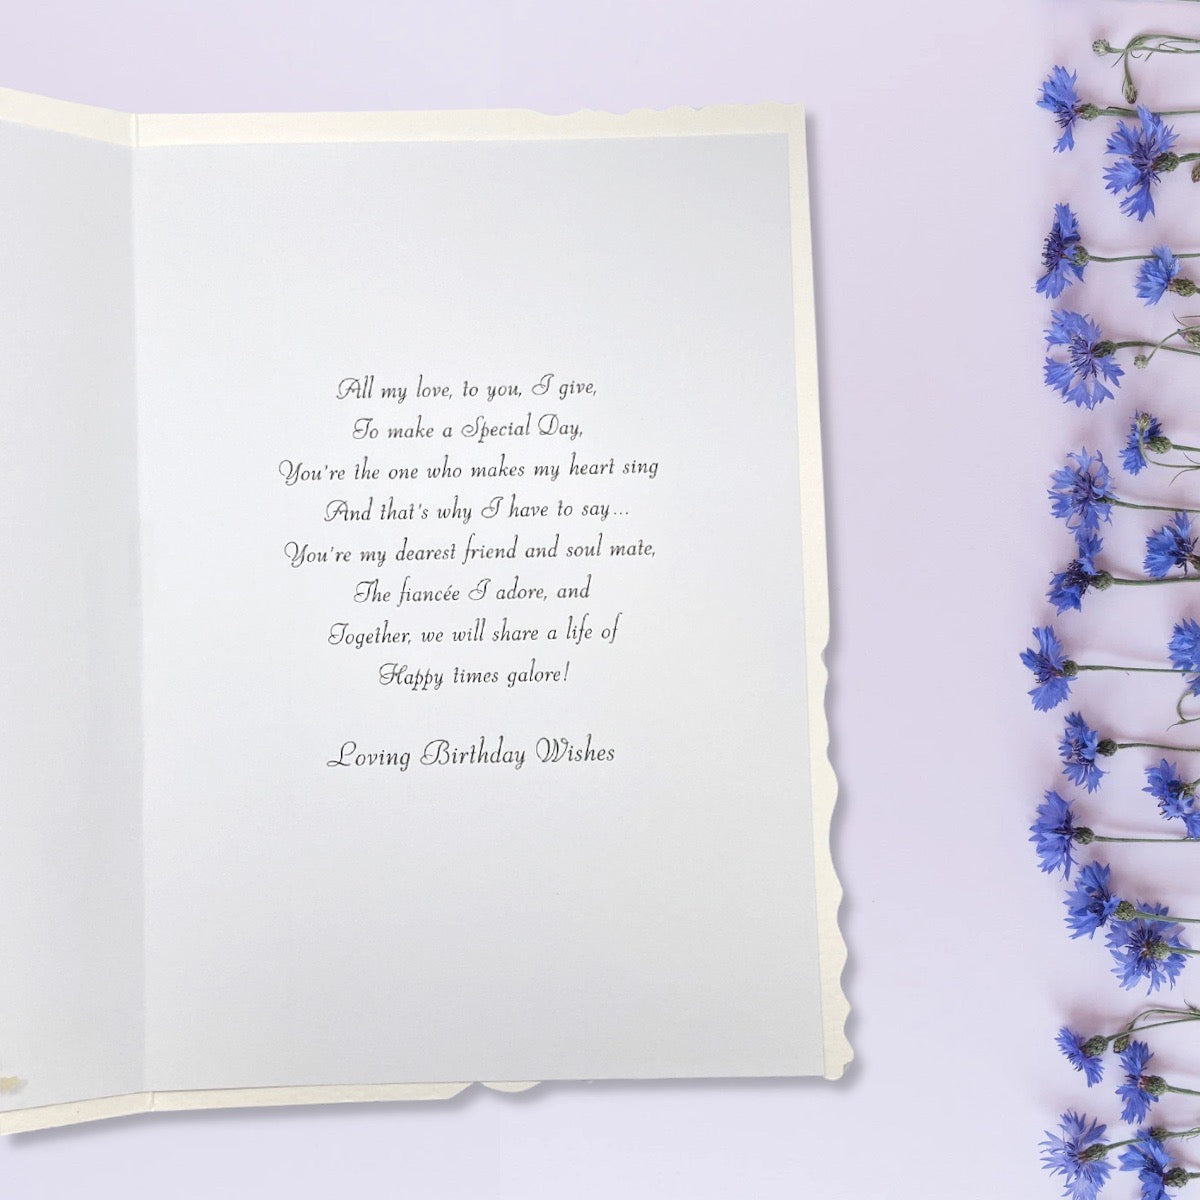 All my love, to you, I give,
To make a Special Day,
You're the one who makes my heart sing
And that's why I have to say...
You're my dearest friend and soul mate,
The fiancée I adore, and
Together, we will share a life of
Happy times galore!
Loving Birthday Wishes